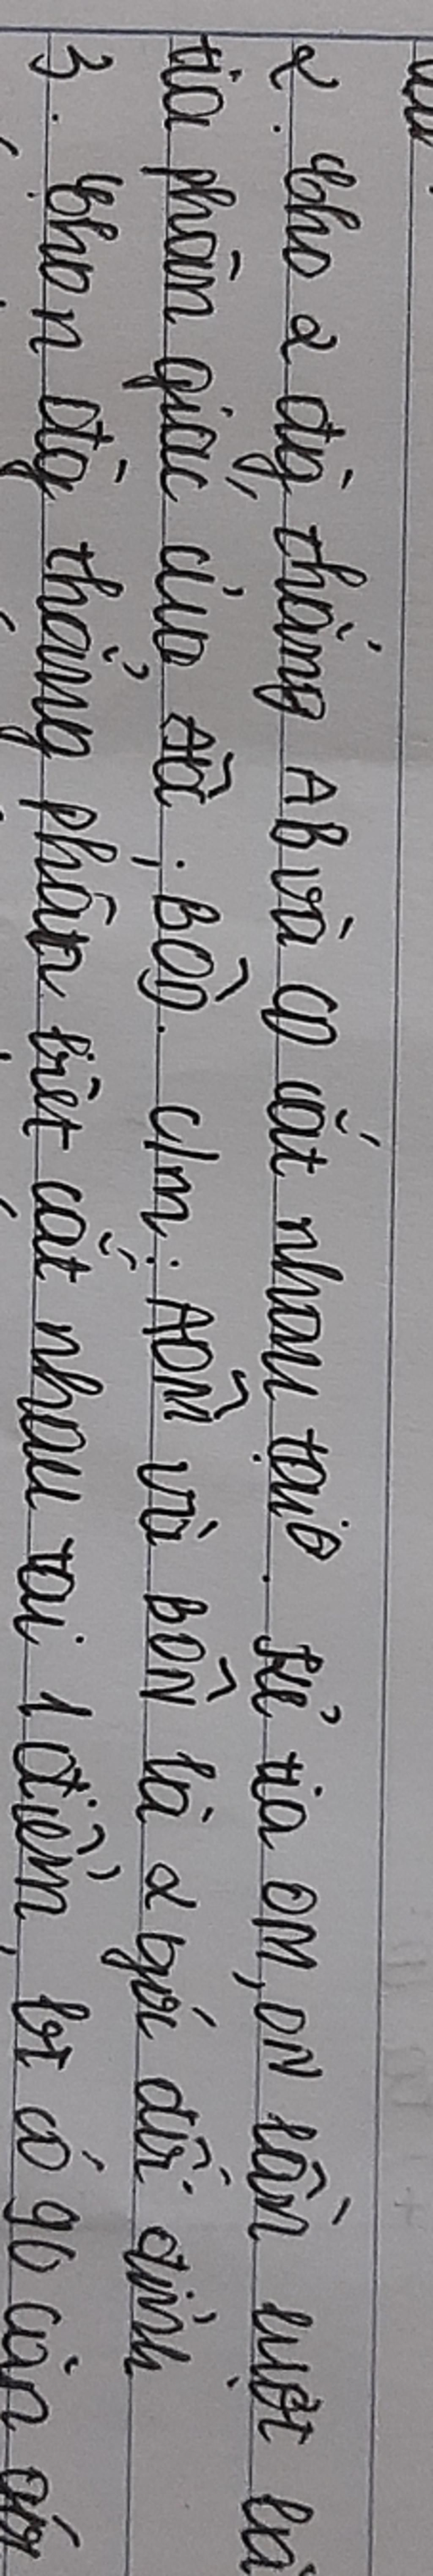 2. Cho 2 đg̀ thẳng AB và CD cắt nhau tại O. Kẻ tia OM, ON lần lượt là
tia phân giác của AÔC; BÔD. c/m: AÔM và BÔN là 2 góc đối đỉnh
3. Cho n đg̀ thẳng phân biệt cắt nhau tại 1 điểm, bt có 90 cặp góc